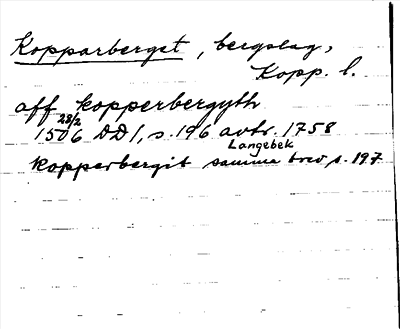 Kopparberget, bergslag,
Kopp. l.
aff kopperbergyth
28/2
1506 DD 1, s. 196 avtr. 1758
Langebek
kopperbergit samma brev s. 197